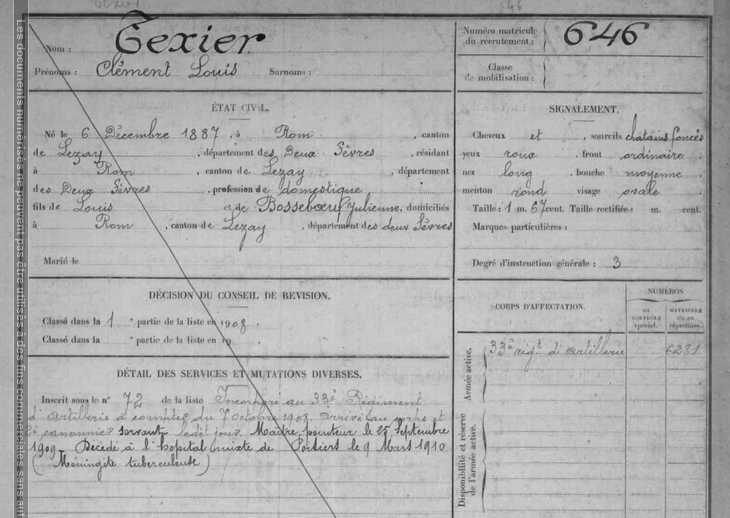 Les documents numérisés ne peuvent pas être utilisés à des fins commerciales sans
Nom : Texier
Prénoms : Clément Louis Surnoms :
ÉTAT CIVIL.
Né le 6 Décembre 1887, à Rom, canton
de Lezay, département des Deux Sèvres, résidant
à Rom, canton de Lezay, département
des Deux Sèvres, profession de domestique
fils de Louis et de Bosseboeuf Julienne, domiciliés
à Rom, canton de Lezay, département des deux Sèvres
Marié le
DÉCISION DU CONSEIL DE REVISION.
Classé dans la 1 e partie de la liste en 1908.
Classé dans la e partie de la liste en 19
DÉTAIL DES SERVICES ET MUTATIONS DIVERSES.
Inscrit sous le n° 72 de la liste Incorporé au 33e Régiment
d'artillerie à compter du 7 Octobre 1908, arrivé au corps et
2e canonnier servant ledit jour. Maître pointeur le 25 Septembre
1909. Décédé à l'hôpital mixte de Poitiers le 9 Mars 1910
(Méningite tuberculeuse)
Numéro matricule
du recrutement : 646
Classe
de mobilisation :
SIGNALEMENT.
Cheveux et , sourcils châtains foncés
yeux roux, front ordinaire
nez long, bouche moyenne
menton rond visage ovale
Taille : 1 m. 67 cent. Taille rectifiée : m. cent.
Marques particulières :
Degré d'instruction générale : 3
CORPS D'AFFECTATION.
NUMÉROS
Armée active.
33e régt d'artillerie 6231
Disponibilité et réserve
de l'armée active.